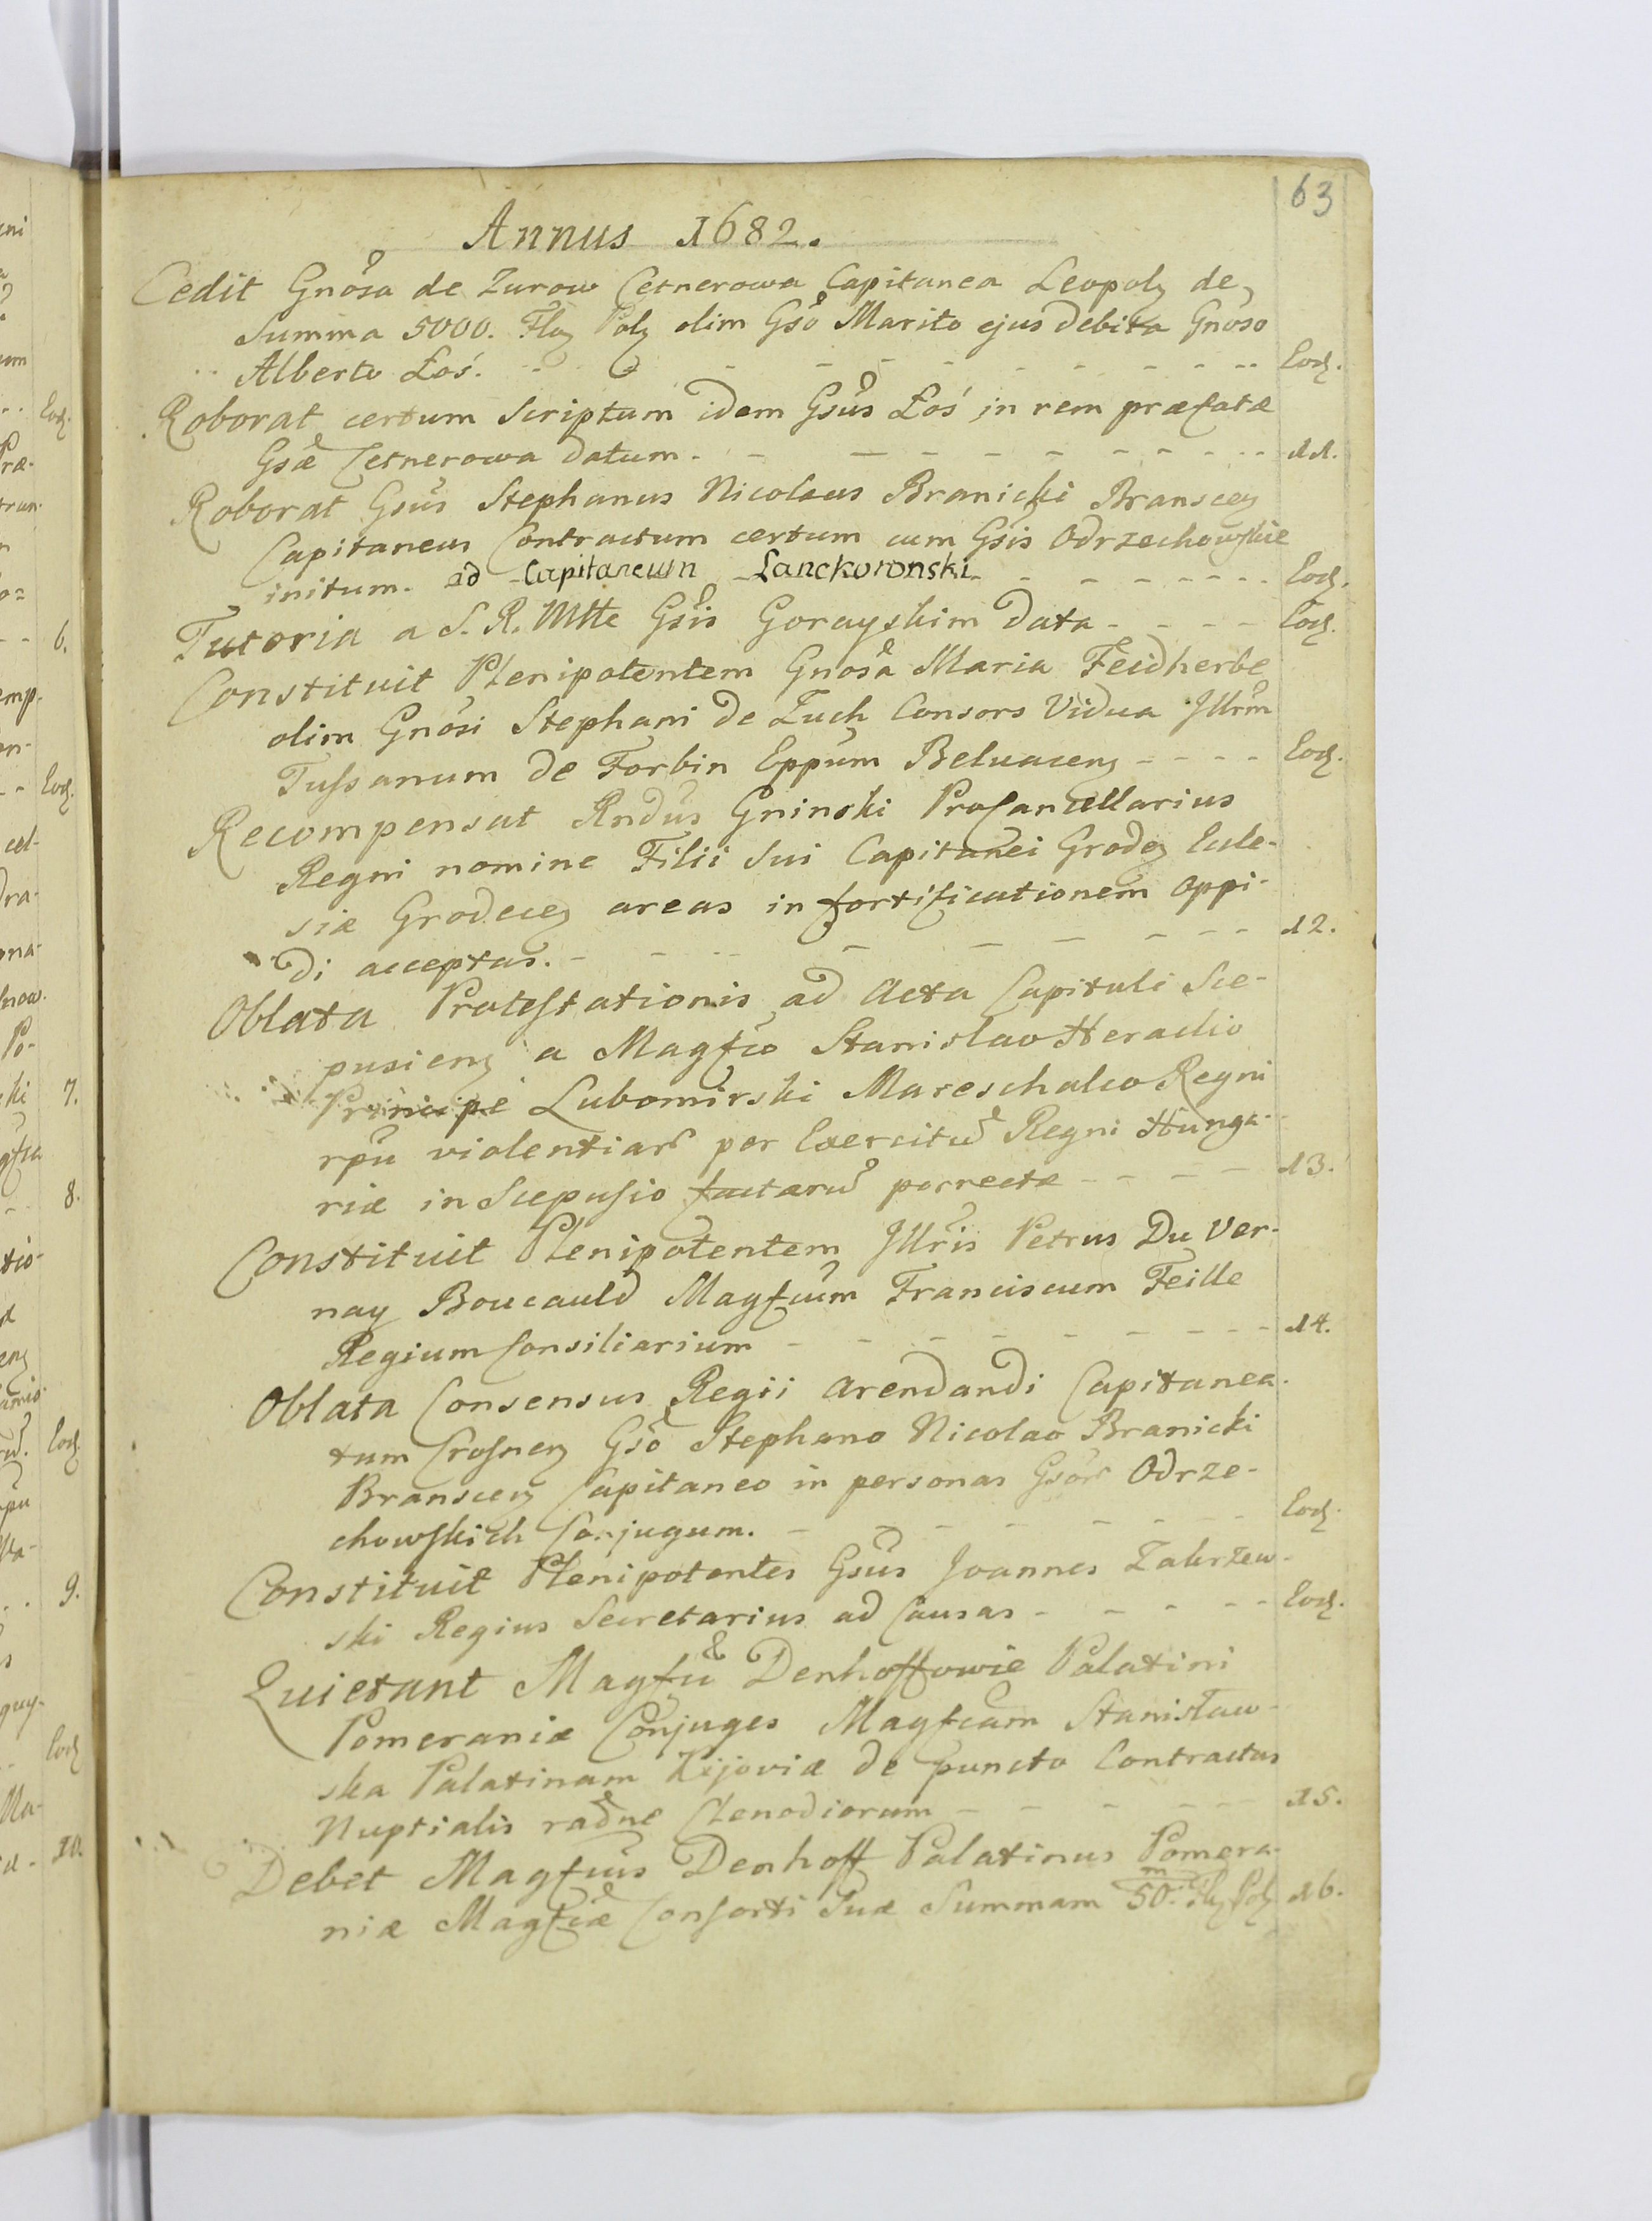 63
Annus 1682.
Cedit Gnosa de Zurow Cetnerowa Capitanea Leopolz de
Summa 5000. Floz Polz olim Gso Marito ejus debita Gnoso
Alberto Łoś. Eod.
Roborat certum Scriptum idem Gsus Łoś in rem præfatæ
Gsæ Cetnerowa datum. 11.
Roborat Gsus Stephanus Nicolaus Branicki Branscez
Capitaneus Contractum certum cum Gsis Odrzechowskie
initum. ad Capitaneum Lanckoronski Eod.
Tutoria a S. R. Mtte Gsis Gorayskim data Eod.
Constituit Plenipotentem Gnosa Maria Feidherbe
olim Gnosi Stephani de Zuch Consors Vidua Illrm
Tussanum de Forbin Eppum Beluacenz Eod.
Recompensat Rndus Gninski ProCancellarius
Regni nomine Filii Sui Capitanei Grodez Eccle-
siæ Grodecez areas in fortificationem Oppi-
di acceptas. 12.
Oblata Protestationis ad Acta Capituli Sce-
pusienz a Magfco Stanislao Heraclio
Principe Lubomirski Mareschalco Regni
rpu violentiar per Exercitu Regni Hunga-
riæ in Scepusio factaru porrectæ 13.
Constituit Plenipotentem Illris Petrus Du Ver-
nay Boucauld Magfcum Franciscum Feille
Regium Consiliarium 14.
Oblata Consensus Regii arendandi Capitanea-
tum Crosnez Gso Stephano Nicolao Branicki
Branscez Capitaneo in personas Gsor Odrze-
chowskich Conjugum. Eod.
Constituit Plenipotentes Gsus Joannes Zakrzew-
ski Regius Secretarius ad Causas Eod.
Quietant Magfci Denhoffowie Palatini
Pomeraniæ Conjuges Magfcam Stanisław-
ska Palatinam Kijoviæ de puncto Contractus
Nuptialis radne Clenodiorum 15.
Debet Magfcus Denhoff Palatinus Pomera-
niæ Magfcæ Consorti Suæ Summam 50.m Flz Polz 16.